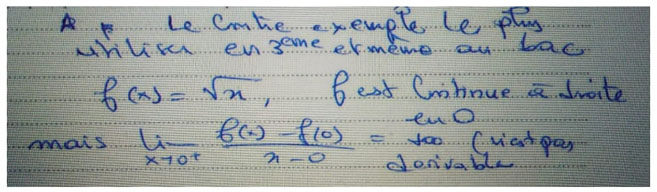 Le contre exemple le plus
utiliser en 3ème et même au bac
f(x) = √x, f est continue à droite
en 0
mais lim x→0+ f(x) - f(0) / x - 0 = +∞ (n'est pas
derivable